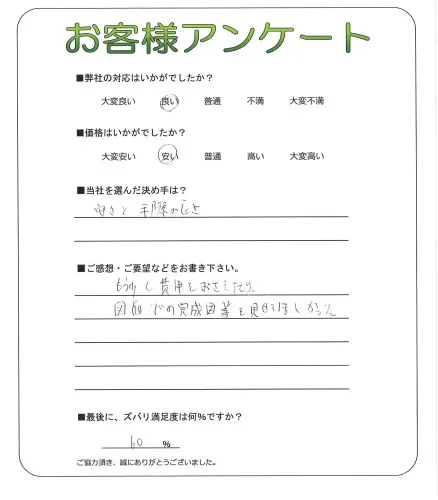 お客様アンケート
■弊社の対応はいかがでしたか？
大変良い 良い 普通 不満 大変不満
■価格はいかがでしたか？
大変安い 安い 普通 高い 大変高い
■当社を選んだ決め手は？
安さと 手際の良さ
■ご感想・ご要望などをお書き下さい。
もう少し費用をおさえたり、
図面での完成図等も見せてほしかった
■最後に、ズバリ満足度は何%ですか？
60 %
ご協力頂き、誠にありがとうございました。